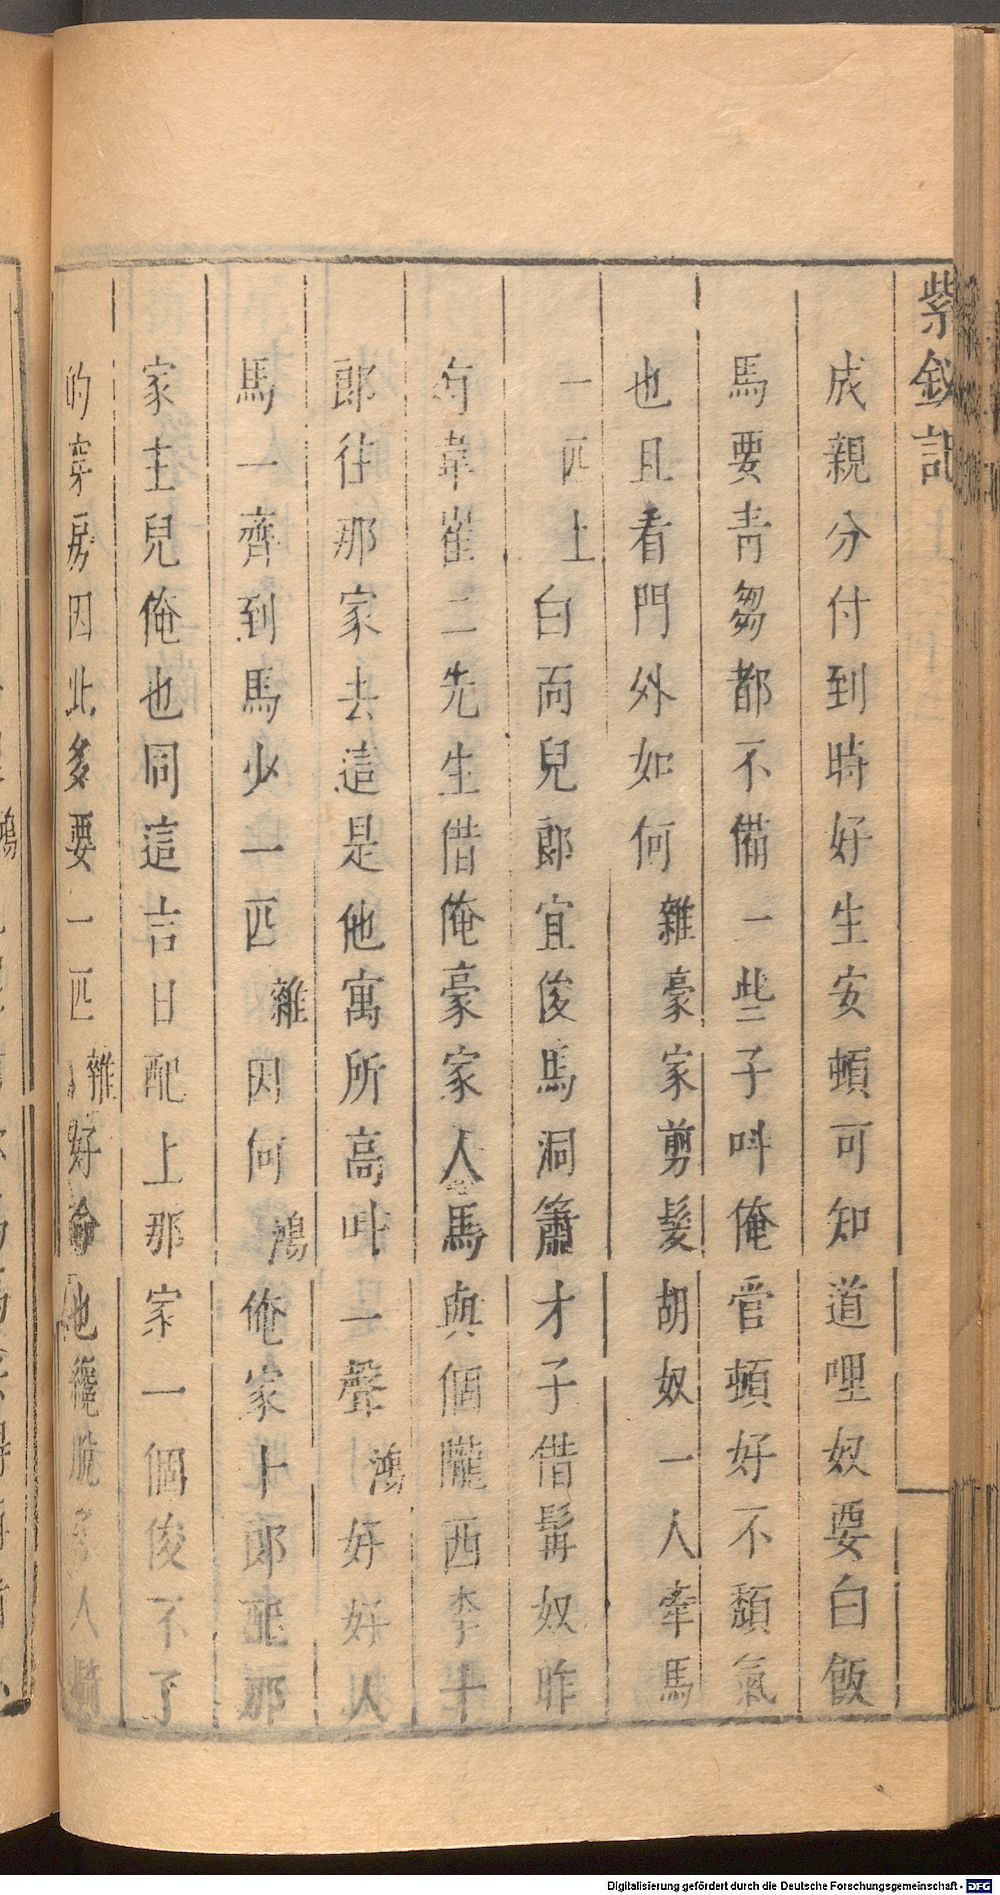 紫釵記
成親分付到時好生安頓可知道哩奴要白飯
馬要青芻都不備一些子呌俺管頓好不頹氣
也且看門外如何雜豪家剪髮胡奴一人牽馬
一匹上白面兒郎宜俊馬洞簫才子借髯奴昨
有韋崔二先生借俺豪家人馬與個隴西李十
郎往那家去這是他寓所高呌一聲鴻好好人
馬一齊到馬少一匹雜因何鴻俺家十郎配那
家主兒俺也同這言日配上那家一個俊不了
的穿房因此多要一匹雜好俞也纔脫人騎
Digitalisierung gefördert durch die Deutsche Forschungsgemeinschaft - DFG